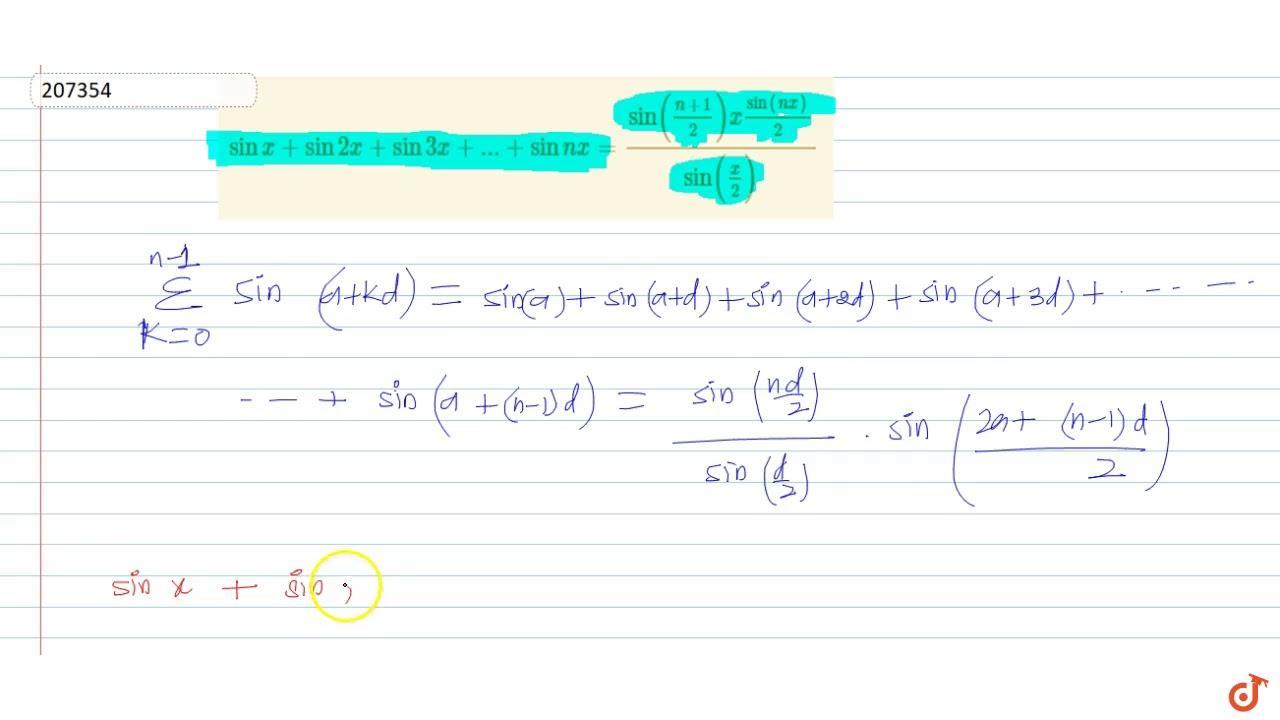 207354
sin x + sin 2x + sin 3x + ... + sin nx = \frac{sin(\frac{n+1}{2}) x \frac{sin(nx)}{2}}{sin(\frac{x}{2})}
\sum_{K=0}^{n-1} sin (a+kd) = sin(a) + sin (a+d) + sin (a+2d) + sin (a+3d) + . - - - -
- - + sin (a + (n-1)d) = \frac{sin (\frac{nd}{2})}{sin (\frac{d}{2})} . sin (\frac{2a + (n-1)d}{2})
sin x + sin